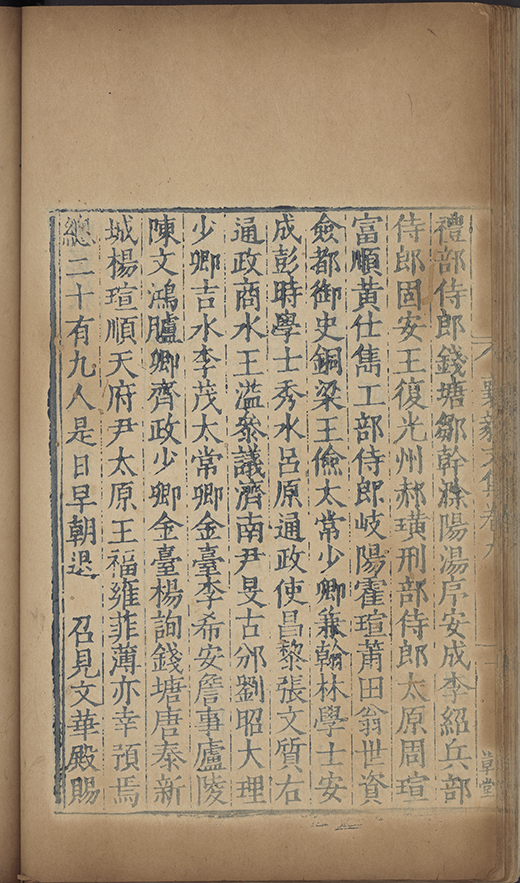 禮部侍郎錢塘鄒幹滁陽湯序安成李紹兵部
侍郎固安王復光州郝璜刑部侍郎太原周瑄
富順黃仕雋工部侍郎岐陽霍瑄莆田翁世資
僉都御史銅梁王儉太常少卿兼翰林學士安
成彭時學士秀水呂原通政使昌黎張文質右
通政商水王溢叅議濟南尹旻古邠劉昭大理
少卿吉水李茂太常卿金臺李希安詹事廬陵
陳文鴻臚卿齊政少卿金臺楊詢錢塘唐泰新
城楊瑄順天府尹太原王福雍菲薄亦幸預焉
總二十有九人是日早朝退 召見文華殿賜
襄毅文集卷九
草堂